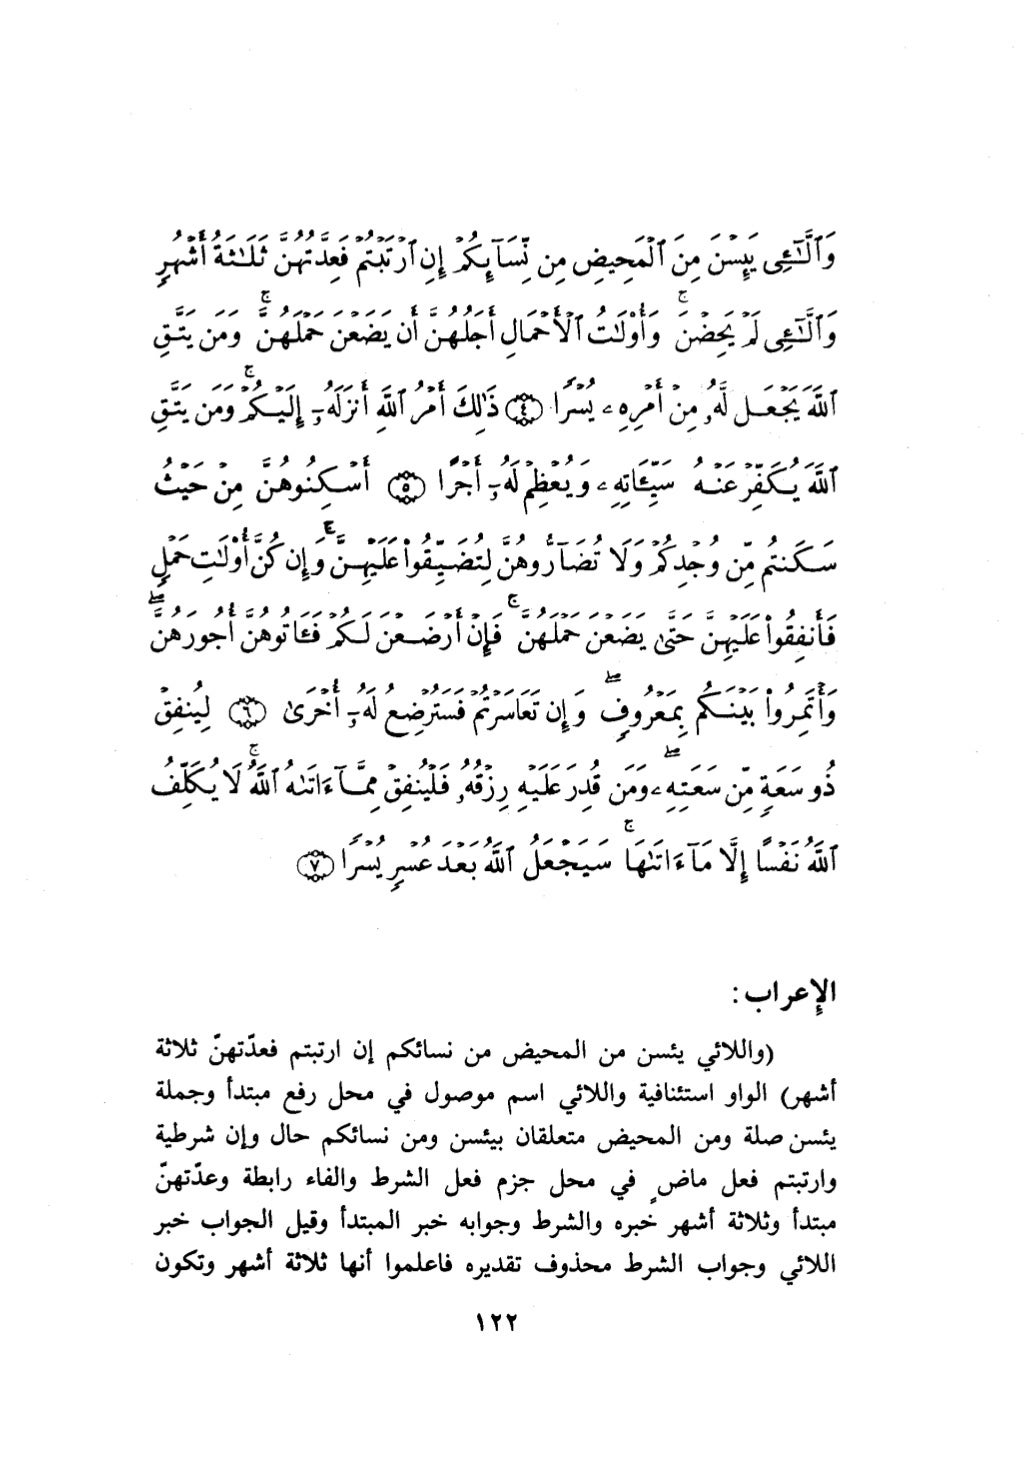 وَٱلَّـٰٓـِٔى يَئِسْنَ مِنَ ٱلْمَحِيضِ مِن نِّسَآئِكُمْ إِنِ ٱرْتَبْتُمْ فَعِدَّتُهُنَّ ثَلَـٰثَةُ أَشْهُرٍ
وَٱلَّـٰٓـِٔى لَمْ يَحِضْنَ ۚ وَأُوْلَـٰتُ ٱلْأَحْمَالِ أَجَلُهُنَّ أَن يَضَعْنَ حَمْلَهُنَّ ۚ وَمَن يَتَّقِ
ٱللَّهَ يَجْعَل لَّهُۥ مِنْ أَمْرِهِۦ يُسْرًا ﴿٤﴾ ذَٰلِكَ أَمْرُ ٱللَّهِ أَنزَلَهُۥٓ إِلَيْكُمْ ۚ وَمَن يَتَّقِ
ٱللَّهَ يُكَفِّرْ عَنْهُ سَيِّـَٔاتِهِۦ وَيُعْظِمْ لَهُۥٓ أَجْرًا ﴿٥﴾ أَسْكِنُوهُنَّ مِنْ حَيْثُ
سَكَنتُم مِّن وُجْدِكُمْ وَلَا تُضَآرُّوهُنَّ لِتُضَيِّقُوا۟ عَلَيْهِنَّ ۚ وَإِن كُنَّ أُوْلَـٰتِ حَمْلٍ
فَأَنفِقُوا۟ عَلَيْهِنَّ حَتَّىٰ يَضَعْنَ حَمْلَهُنَّ ۚ فَإِنْ أَرْضَعْنَ لَكُمْ فَـَٔاتُوهُنَّ أُجُورَهُنَّ ۖ
وَأْتَمِرُوا۟ بَيْنَكُم بِمَعْرُوفٍ ۖ وَإِن تَعَاسَرْتُمْ فَسَتُرْضِعُ لَهُۥٓ أُخْرَىٰ ﴿٦﴾ لِيُنفِقْ
ذُو سَعَةٍ مِّن سَعَتِهِۦ ۖ وَمَن قُدِرَ عَلَيْهِ رِزْقُهُۥ فَلْيُنفِقْ مِمَّآ ءَاتَىٰهُ ٱللَّهُ ۚ لَا يُكَلِّفُ
ٱللَّهُ نَفْسًا إِلَّا مَآ ءَاتَىٰهَا ۚ سَيَجْعَلُ ٱللَّهُ بَعْدَ عُسْرٍ يُسْرًا ﴿٧﴾
الإعراب:
(واللائي يئسن من المحيض من نسائكم إن ارتبتم فعدّتهنّ ثلاثة
أشهر) الواو استئنافية واللائي اسم موصول في محل رفع مبتدأ وجملة
يئسن صلة ومن المحيض متعلقان بيئسن ومن نسائكم حال وإن شرطية
وارتبتم فعل ماضٍ في محل جزم فعل الشرط والفاء رابطة وعدّتهنّ
مبتدأ وثلاثة أشهر خبره والشرط وجوابه خبر المبتدأ وقيل الجواب خبر
اللائي وجواب الشرط محذوف تقديره فاعلموا أنها ثلاثة أشهر وتكون
١٢٢